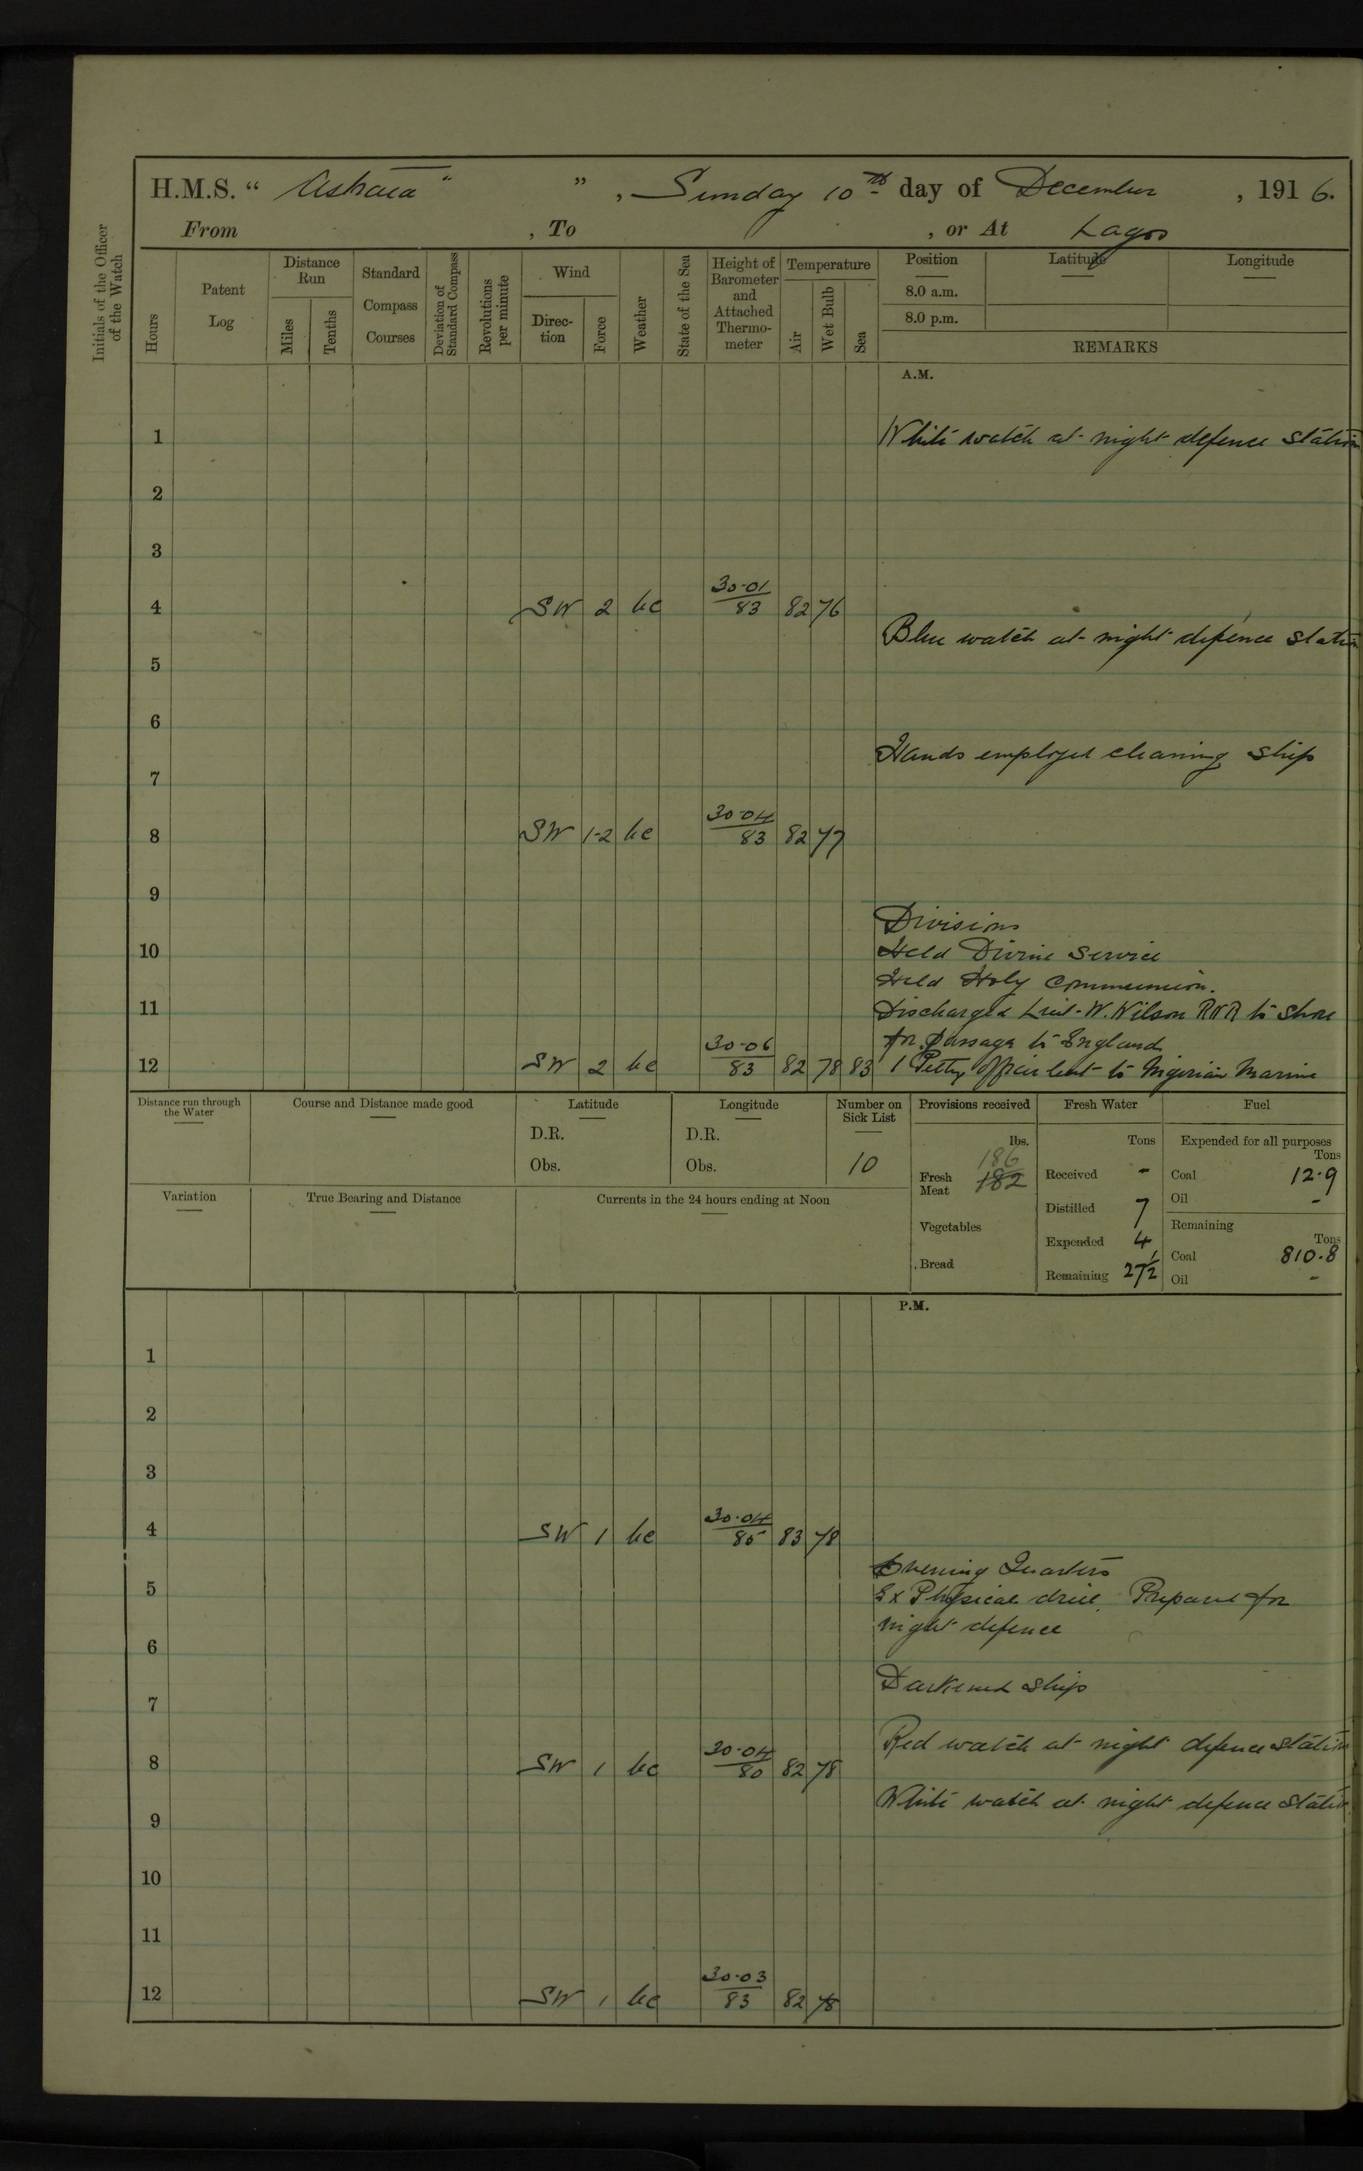 H.M.S. " Astraea " ", Sunday 10th day of December, 1916.
From , To , or At Lagos
Initials of the Officer of the Watch
Hours
Patent Log
Distance Run
Miles
Tenths
Standard Compass Courses
Deviation of Standard Compass
Revolutions per minute
Wind
Direction
Force
Weather
State of the Sea
Height of Barometer and Attached Thermometer
Temperature
Air
Wet Bulb
Sea
Position
Latitude
Longitude
8.0 a.m.
8.0 p.m.
REMARKS
A.M.
1 White watch at night defence station
2
3
4 SW 2 bc 30.01/83 82 76
Blue watch at night defence station
5
6
Hands employed cleaning ship
7
8 SW 1-2 bc 30.04/83 82 77
9
Divisions
10 Held Divine Service
Held Holy Communion.
11 Discharged Lieut. W. Wilson RNR to shore
for passage to England
12 SW 2 bc 30.06/83 82 78 83 1 Petty officer lent to Nigerian Marine
Distance run through the Water
Course and Distance made good
Latitude
D.R.
Obs.
Longitude
D.R.
Obs.
Number on Sick List
10
Provisions received
lbs.
186
Fresh Meat 182
Vegetables
Bread
Fresh Water
Tons
Received -
Distilled 7
Expended 4
Remaining 27½
Fuel
Expended for all purposes
Tons
Coal 12.9
Oil -
Remaining
Tons
Coal 810.8
Oil -
Variation
True Bearing and Distance
Currents in the 24 hours ending at Noon
P.M.
1
2
3
4 SW 1 bc 30.04/85 83 78
Evening Quarters
5 Ex Physical drill. Prepared for
night defence
6
Darkened ship
7
Red watch at night defence station
8 SW 1 bc 30.04/80 82 78
White watch at night defence station
9
10
11
12 SW 1 bc 30.03/83 82 78